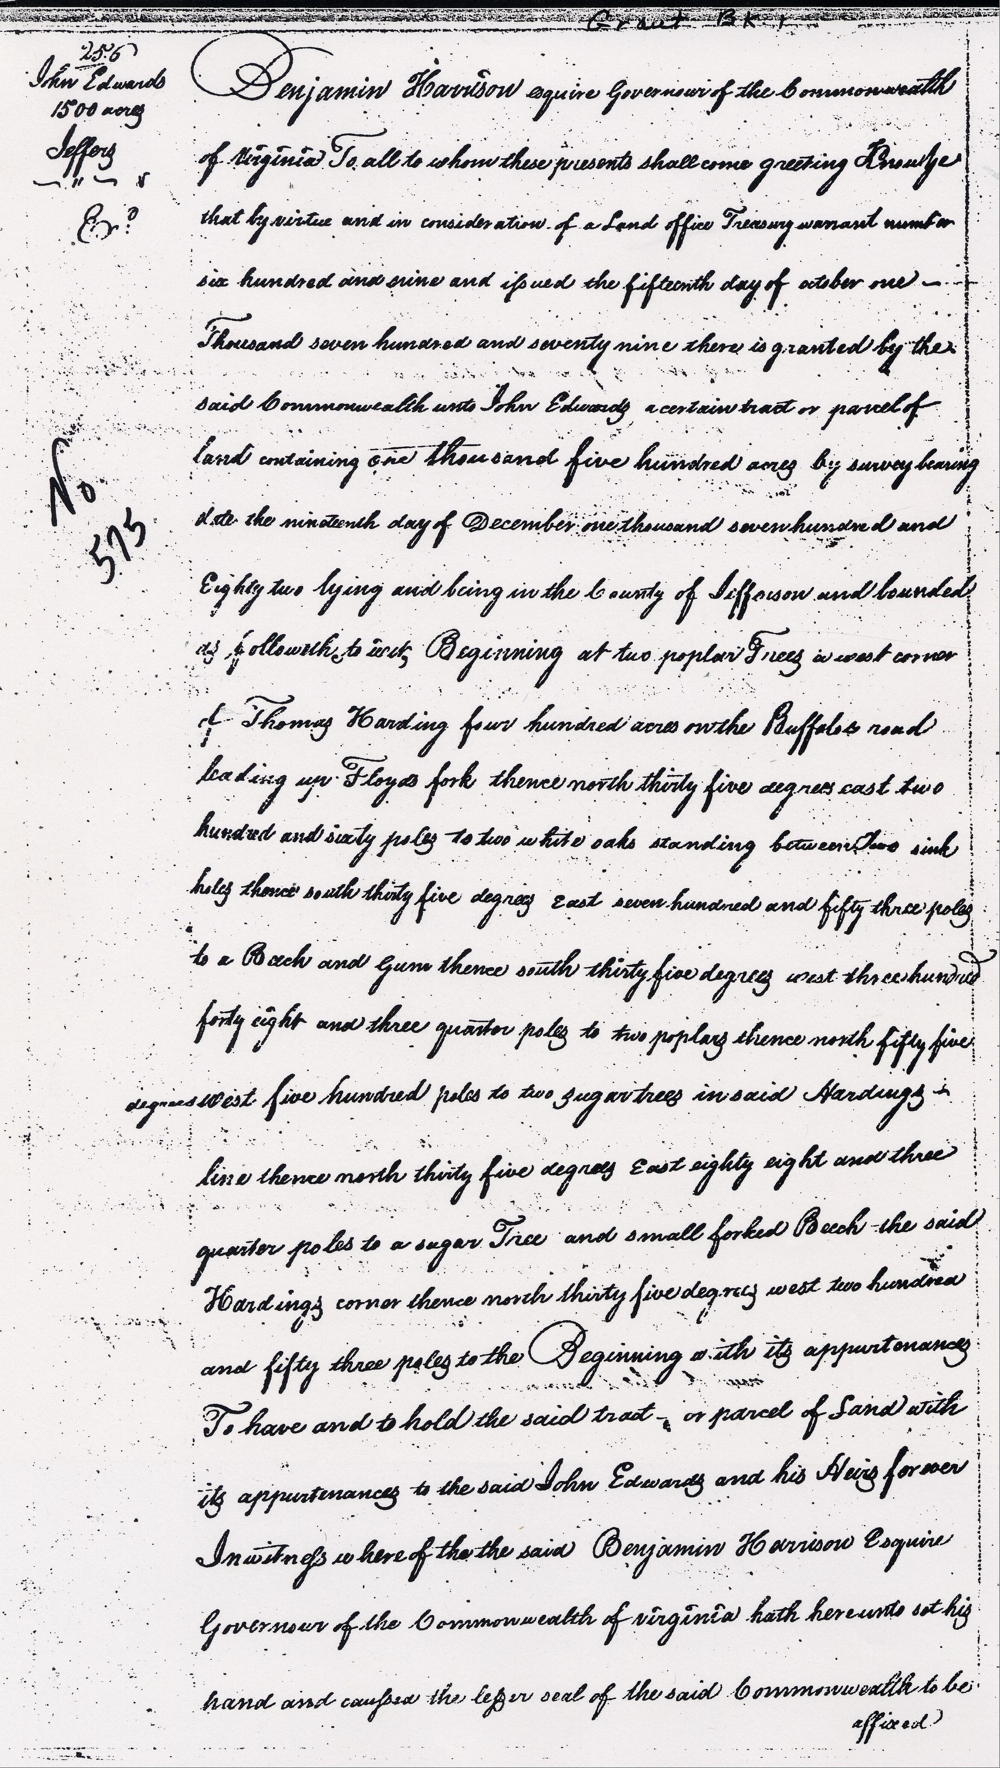 Grant Bk 1
256
John Edwards
1500 acres
Jeffers
Ex.d
No
575
Benjamin Harrison esquire Governour of the Commonwealth
of Virginia To all to whom these presents shall come greeting Know ye
that by virtue and in consideration of a Land office Treasury warrant number
six hundred and nine and issued the fifteenth day of october one
Thousand seven hundred and seventy nine there is granted by the
said Commonwealth unto John Edwards a certain tract or parcel of
land containing one thousand five hundred acres by survey bearing
date the nineteenth day of December one thousand seven hundred and
Eighty two lying and being in the County of Jefferson and bounded
as followeth, to wit, Beginning at two poplar Trees a west corner
of Thomas Harding four hundred acres on the Buffalo road
leading up Floyds fork thence north thirty five degrees east two
hundred and sixty poles to two white oaks standing between Two sink
holes thence south thirty five degrees East seven hundred and fifty three poles
to a Beech and Gum thence south thirty five degrees west three hundred
forty eight and three quarter poles to two poplars thence north fifty five
degrees west five hundred poles to two sugar trees in said Hardings
line thence north thirty five degrees East eighty eight and three
quarter poles to a sugar Tree and small forked Beech the said
Hardings corner thence north thirty five degrees west two hundred
and fifty three poles to the Beginning with its appurtenances
To have and to hold the said tract or parcel of Land with
its appurtenances to the said John Edwards and his Heirs forever
In witness where of the the said Benjamin Harrison Esquire
Governour of the Commonwealth of Virginia hath hereunto set his
hand and caussed the lesser seal of the said Commonwealth to be
affixed